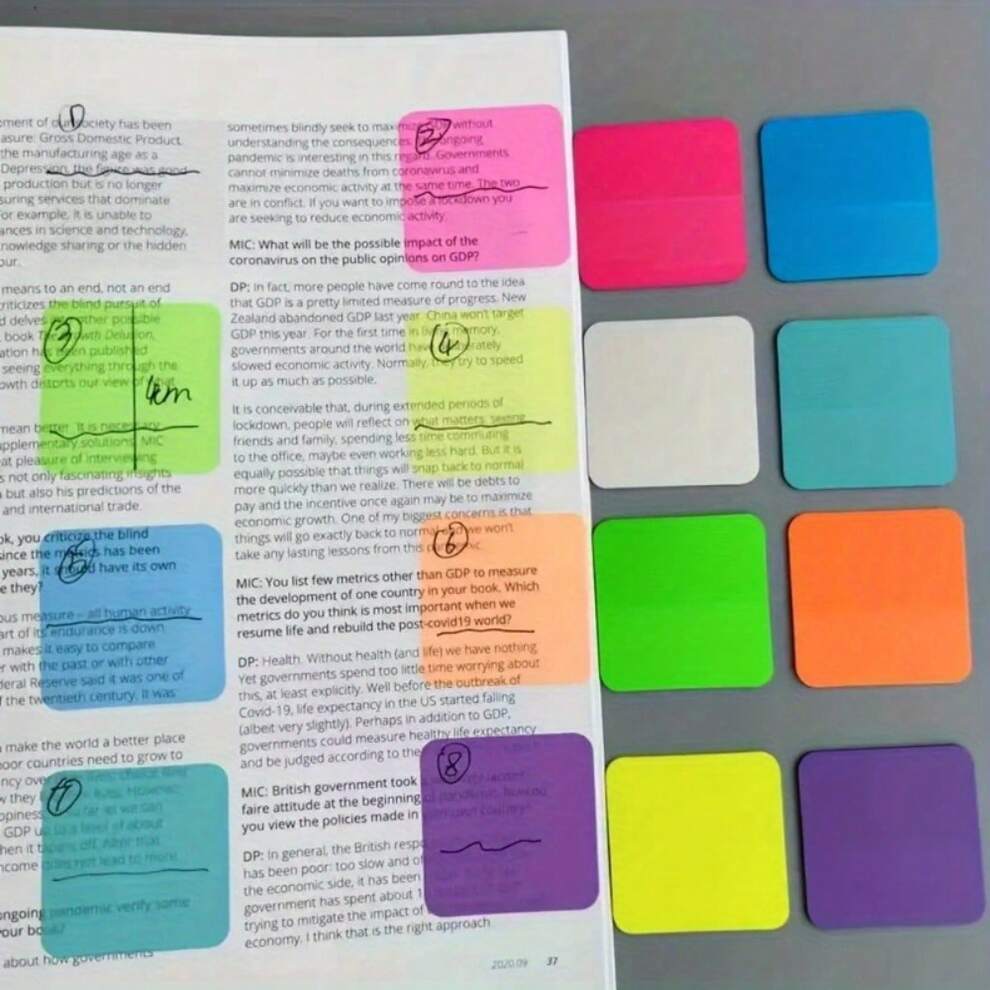 ①
ement of our society has been
asure. Gross Domestic Product
the manufacturing age as a
Depression, the figure was good
production but is no longer
suring services that dominate
For example, it is unable to
ances in science and technology,
nowledge sharing or the hidden
our.
means to an end, not an end
riticizes the blind pursuit of
d delves other possible
book The Growth Delusion,
ation has been published
③
seeing everything through the
owth distorts our view of what
4cm
mean better. It is necessary
upplementary solutions. MIC
at pleasure of interviewing
s not only fascinating insights
but also his predictions of the
and international trade.
ok, you criticize the blind
since the metrics has been
years, it should have its own
⑤
e they?
ous measure – all human activity
art of its endurance is down
makes it easy to compare
r with the past or with other
deral Reserve said it was one of
f the twentieth century. It was
make the world a better place
oor countries need to grow to
ncy over
w they However,
⑦
opiness. far as we can
GDP up to a level of about
hen it takes off. After that
ncome does not lead to more
ongoing pandemic verify some
our book?
about how governments
sometimes blindly seek to maximize GDP without
②
understanding the consequences. ongoing
pandemic is interesting in this regard. Governments
cannot minimize deaths from coronavirus and
maximize economic activity at the same time. The two
are in conflict. If you want to impose a lockdown you
are seeking to reduce economic activity.
MIC: What will be the possible impact of the
coronavirus on the public opinions on GDP?
DP: In fact, more people have come round to the idea
that GDP is a pretty limited measure of progress. New
Zealand abandoned GDP last year. China won't target
GDP this year. For the first time in living memory,
④
governments around the world have deliberately
slowed economic activity. Normally, they try to speed
it up as much as possible.
It is conceivable that, during extended periods of
lockdown, people will reflect on what matters: seeing
friends and family, spending less time commuting
to the office, maybe even working less hard. But it is
equally possible that things will snap back to normal
more quickly than we realize. There will be debts to
pay and the incentive once again may be to maximize
economic growth. One of my biggest concerns is that
things will go exactly back to normal and we won't
⑥
take any lasting lessons from this pandemic.
MIC: You list few metrics other than GDP to measure
the development of one country in your book. Which
metrics do you think is most important when we
resume life and rebuild the post-covid19 world?
DP: Health. Without health (and life) we have nothing
Yet governments spend too little time worrying about
this, at least explicitly. Well before the outbreak of
Covid-19, life expectancy in the US started falling
(albeit very slightly). Perhaps in addition to GDP,
governments could measure healthy life expectancy
and be judged according to the
⑧
MIC: British government took a
faire attitude at the beginning of pandemic, how do
you view the policies made in
DP: In general, the British respo
has been poor: too slow and of
the economic side, it has been
government has spent about 1
trying to mitigate the impact of
economy. I think that is the right approach
2020.09 37